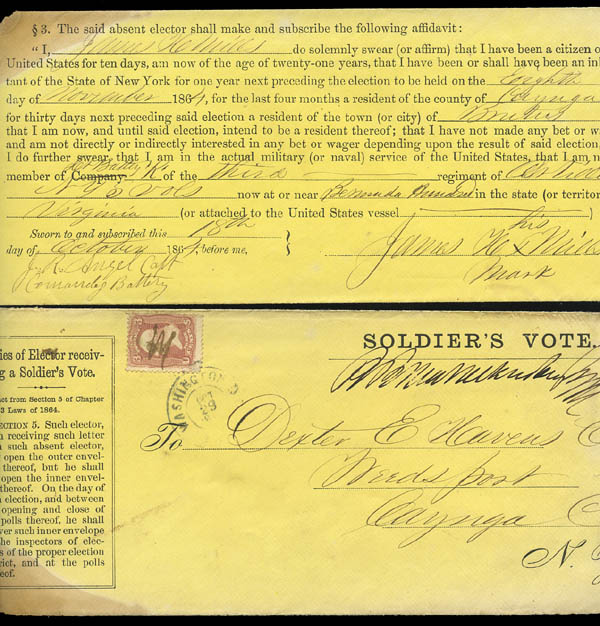 § 3. The said absent elector shall make and subscribe the following affidavit:
"I, James H Miles do solemnly swear (or affirm) that I have been a citizen o
United States for ten days, am now of the age of twenty-one years, that I have been or shall have been an inh
tant of the State of New York for one year next preceding the election to be held on the Eighth
day of November 1864, for the last four months a resident of the county of Cayuga
for thirty days next preceding said election a resident of the town (or city) of Brutus
that I am now, and until said election, intend to be a resident thereof; that I have not made any bet or w
and am not directly or indirectly interested in any bet or wager depending upon the result of said election,
I do further swear, that I am in the actual military (or naval) service of the United States, that I am n
member of Company Battery K of the third regiment of Artille
N Y S Vols now at or near Bermuda Hundred in the state (or territor
Virginia (or attached to the United States vessel )
Sworn to and subscribed this 18th
day of October 1864, before me,
Angel Capt
Comanding Battery
his
James H Miles
Mark
ies of Elector receiv-
g a Soldier's Vote.
ct from Section 5 of Chapter
3 Laws of 1864.
ECTION 5. Such elector,
n receiving such letter
such absent elector,
open the outer envel-
thereof, but he shall
open the inner envel-
thereof. On the day of
election, and between
opening and close of
polls thereof, he shall
ver such inner envelope
he inspectors of elec-
s of the proper election
rict, and at the polls
eof.
WASHINGTON D
OCT
29
SOLDIER'S VOTE.
To Dexter E Havens
Weedsport
Cayuga C
N. Y